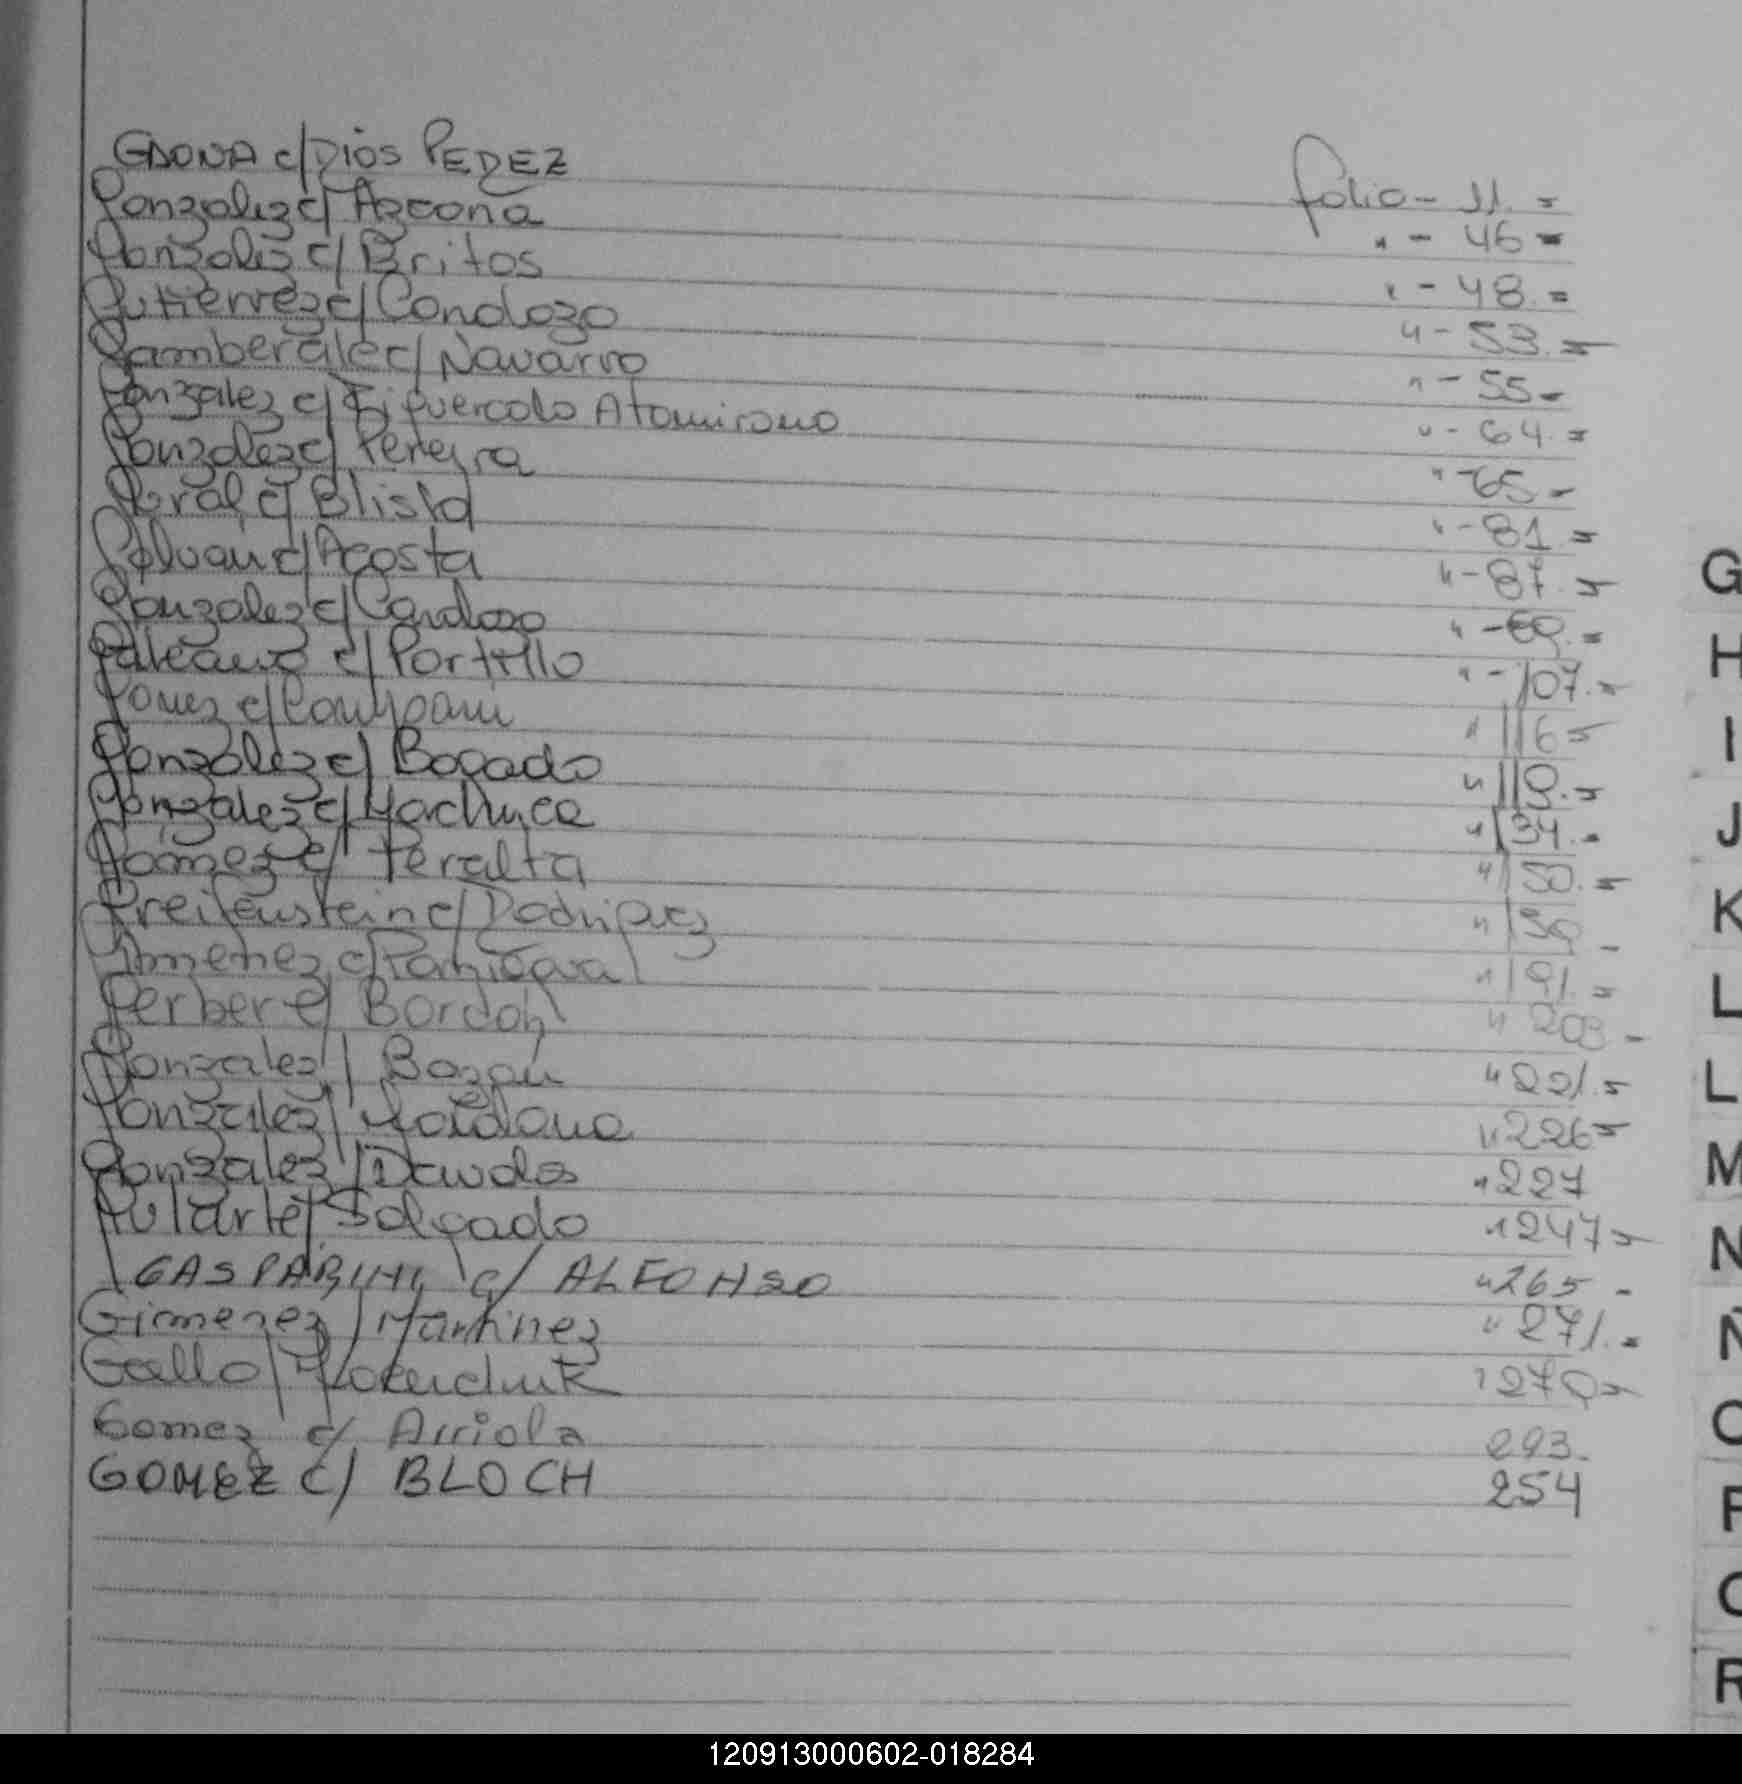 GAONA c/ Dios PEREZ folio - 11. =
Gonzalez c/ Azcona " - 46 =
Gonzalez c/ Britos " - 48. =
Gutierrez c/ Condozo " - 53. =
Gamberale c/ Navarro " - 55 =
Gonzalez c/ Figueredo Atamirano " - 64. =
Gonzalez c/ Pereyra " - 65 =
c/ " - 81. =
Galvan c/ Acosta " - 87. =
Gonzalez c/ Cardozo " -
Galeano c/ Portillo " - 107. =
Gomez c/ " 116 =
Gonzalez c/ Bogado " 119. =
Gonzalez c/ Machuca " 134. =
Gomez c/ Peralta " 150. =
Greifenstein c/ Rodriguez "
Gimenez c/ Paniagua " 191. =
Gerber c/ Bordon " 203 -
Gonzalez / Bazan " 221. =
Gonzalez / Maidana " 226 =
Gonzalez / " 227
Salgado " 247 =
GASPARINI c/ ALFONSO " 265 -
Gimenez / Martinez " 271. =
Gallo /
Gomez c/ Arriola 293.
GOMEZ c/ BLOCH 254
G
H
I
J
K
L
L
M
N
Ñ
O
P
Q
R
120913000602-018284